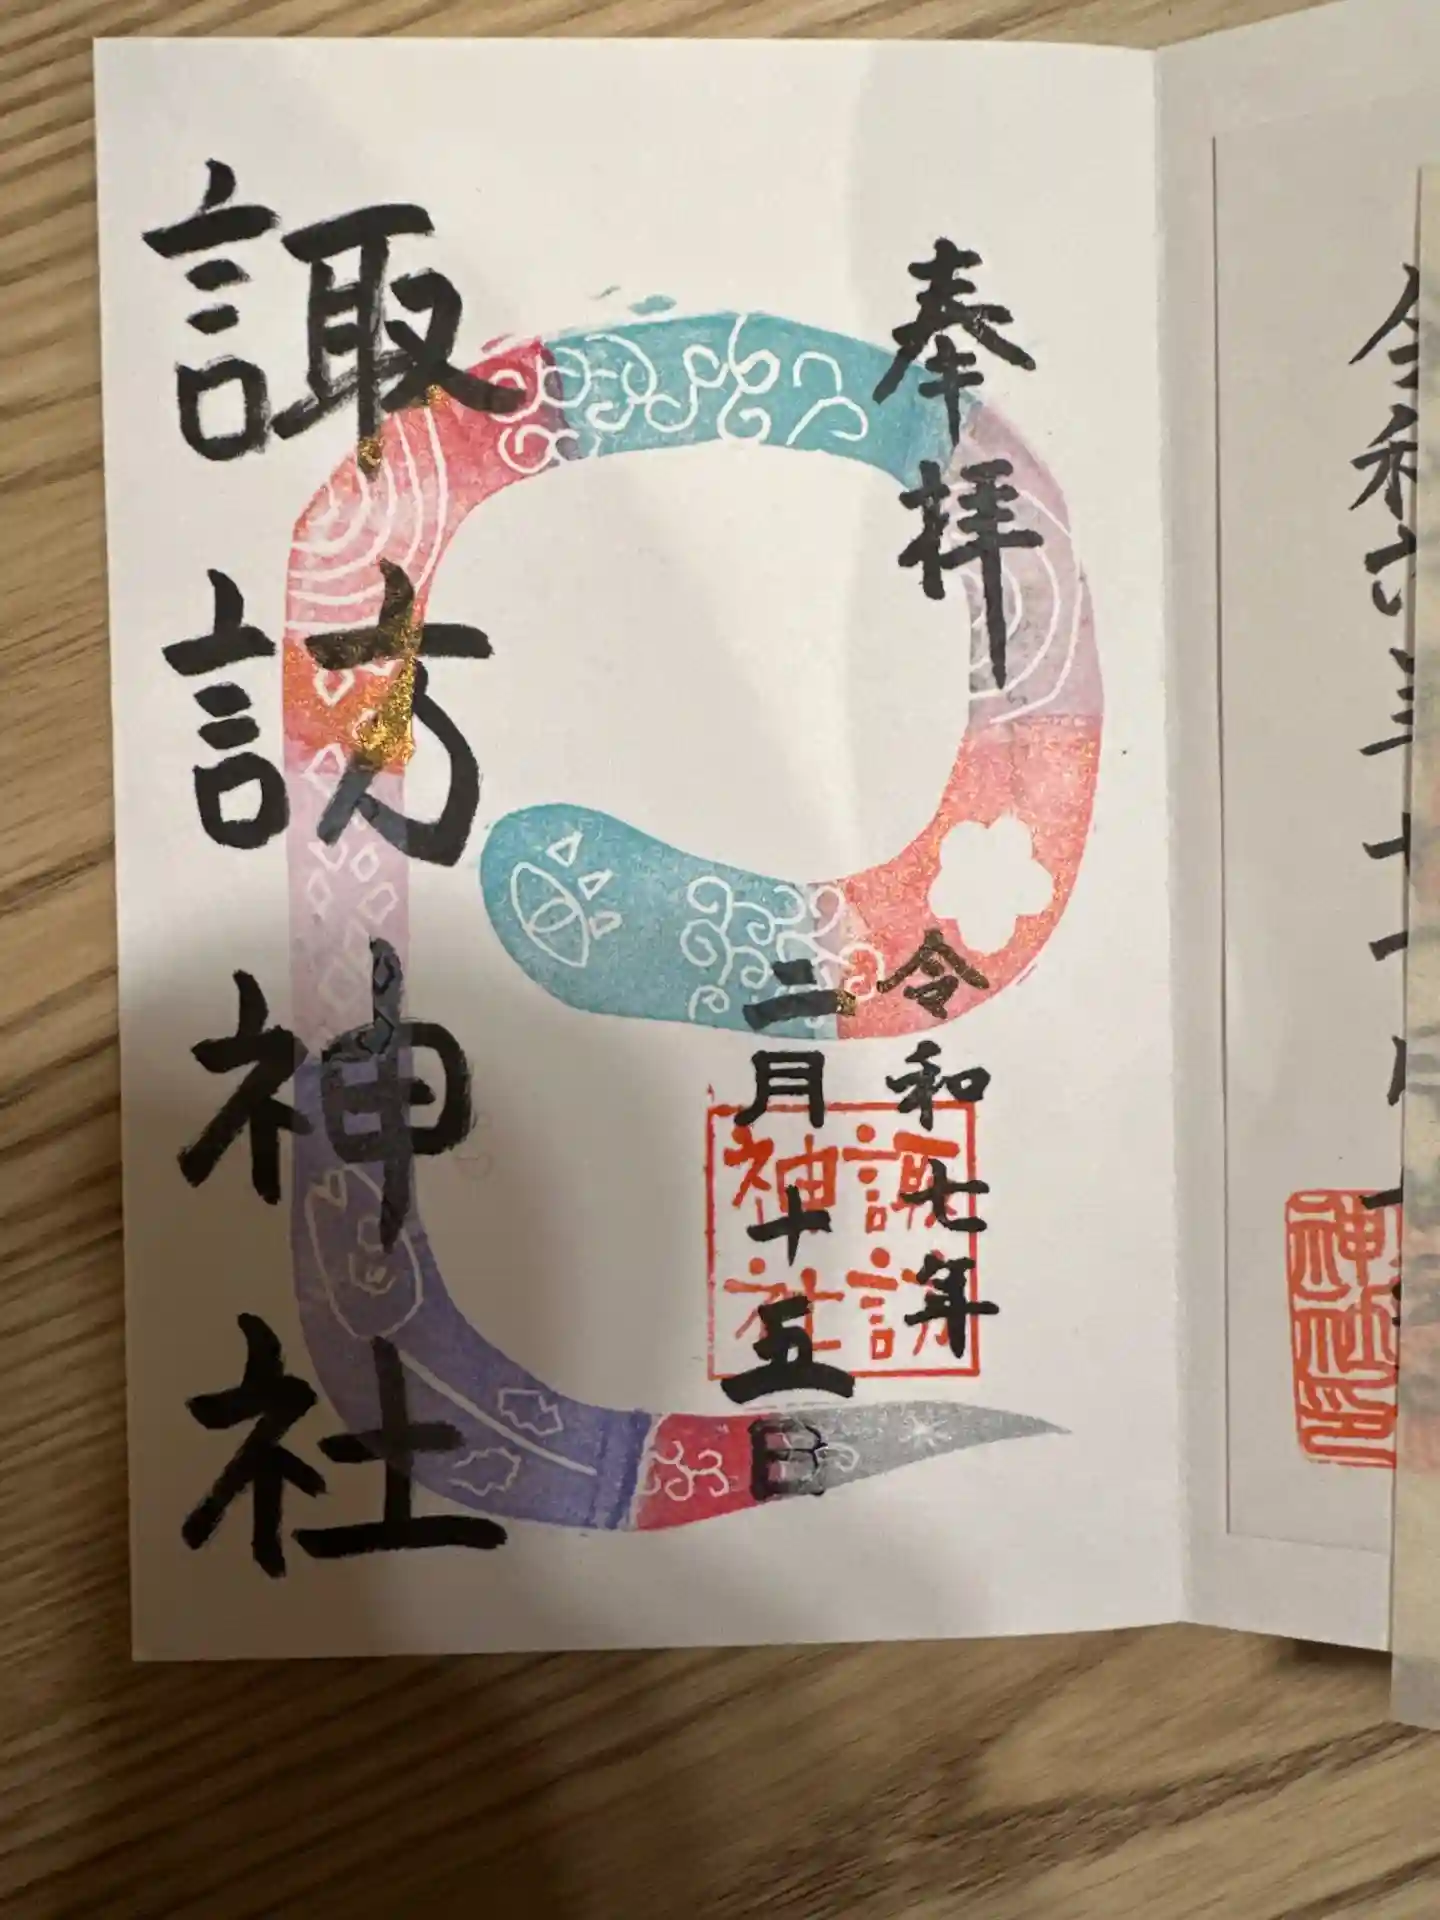 奉拝
令和七年
二月十五日
諏訪神社
諏訪
神社
令和六年十
神社印